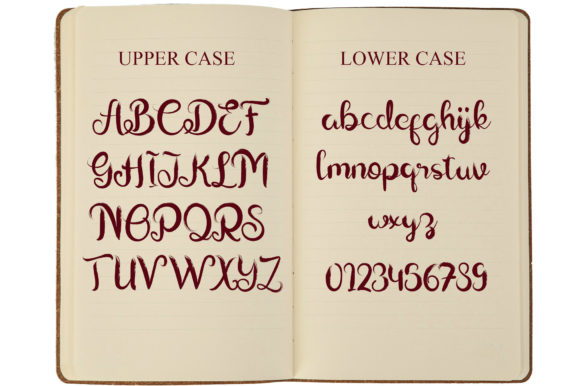 UPPER CASE
ABCDEF
GHIJKLM
NOPQRS
TUVWXYZ
LOWER CASE
abcdefghijk
lmnopqrstuv
wxyz
0123456789